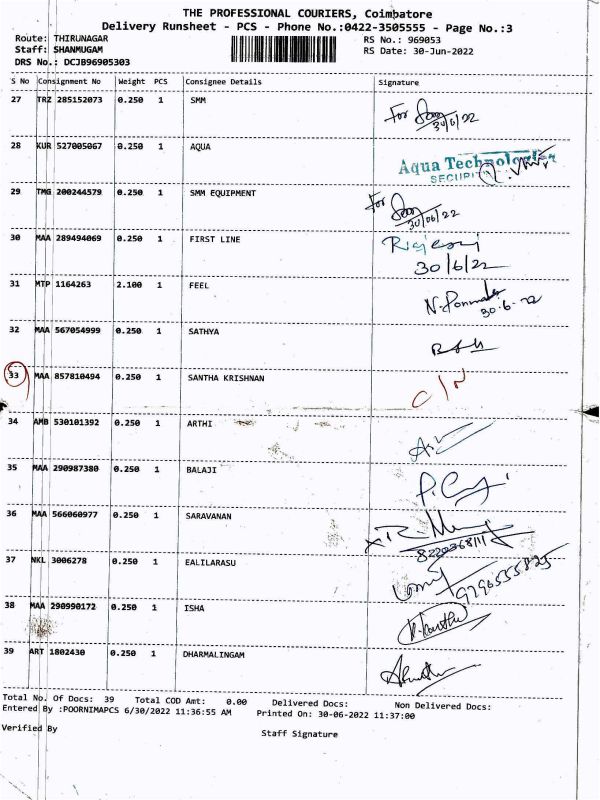 THE PROFESSIONAL COURIERS, Coimbatore
Delivery Runsheet - PCS - Phone No.:0422-3505555 - Page No.:3
Route: THIRUNAGAR RS No.: 969053
Staff: SHANMUGAM RS Date: 30-Jun-2022
DRS No.: DCJB96905303
S No Consignment No Weight PCS Consignee Details Signature
27 TRZ 285152073 0.250 1 SMM
For
30/6/22
28 KUR 527005067 0.250 1 AQUA
Aqua Technologies
SECURITY
29 TMG 200244579 0.250 1 SMM EQUIPMENT
For
30/06/22
30 MAA 289494069 0.250 1 FIRST LINE
30/6/22
31 MTP 1164263 2.100 1 FEEL
30-6-22
32 MAA 567054999 0.250 1 SATHYA
33 MAA 857810494 0.250 1 SANTHA KRISHNAN
C/N
34 AMB 530101392 0.250 1 ARTHI
35 MAA 290987380 0.250 1 BALAJI
36 MAA 566060977 0.250 1 SARAVANAN
37 NKL 3006278 0.250 1 EALILARASU
38 MAA 290990172 0.250 1 ISHA
39 ART 1802430 0.250 1 DHARMALINGAM
Total No. Of Docs: 39 Total COD Amt: 0.00 Delivered Docs: Non Delivered Docs:
Entered By :POORNIMAPCS 6/30/2022 11:36:55 AM Printed On: 30-06-2022 11:37:00
Verified By Staff Signature